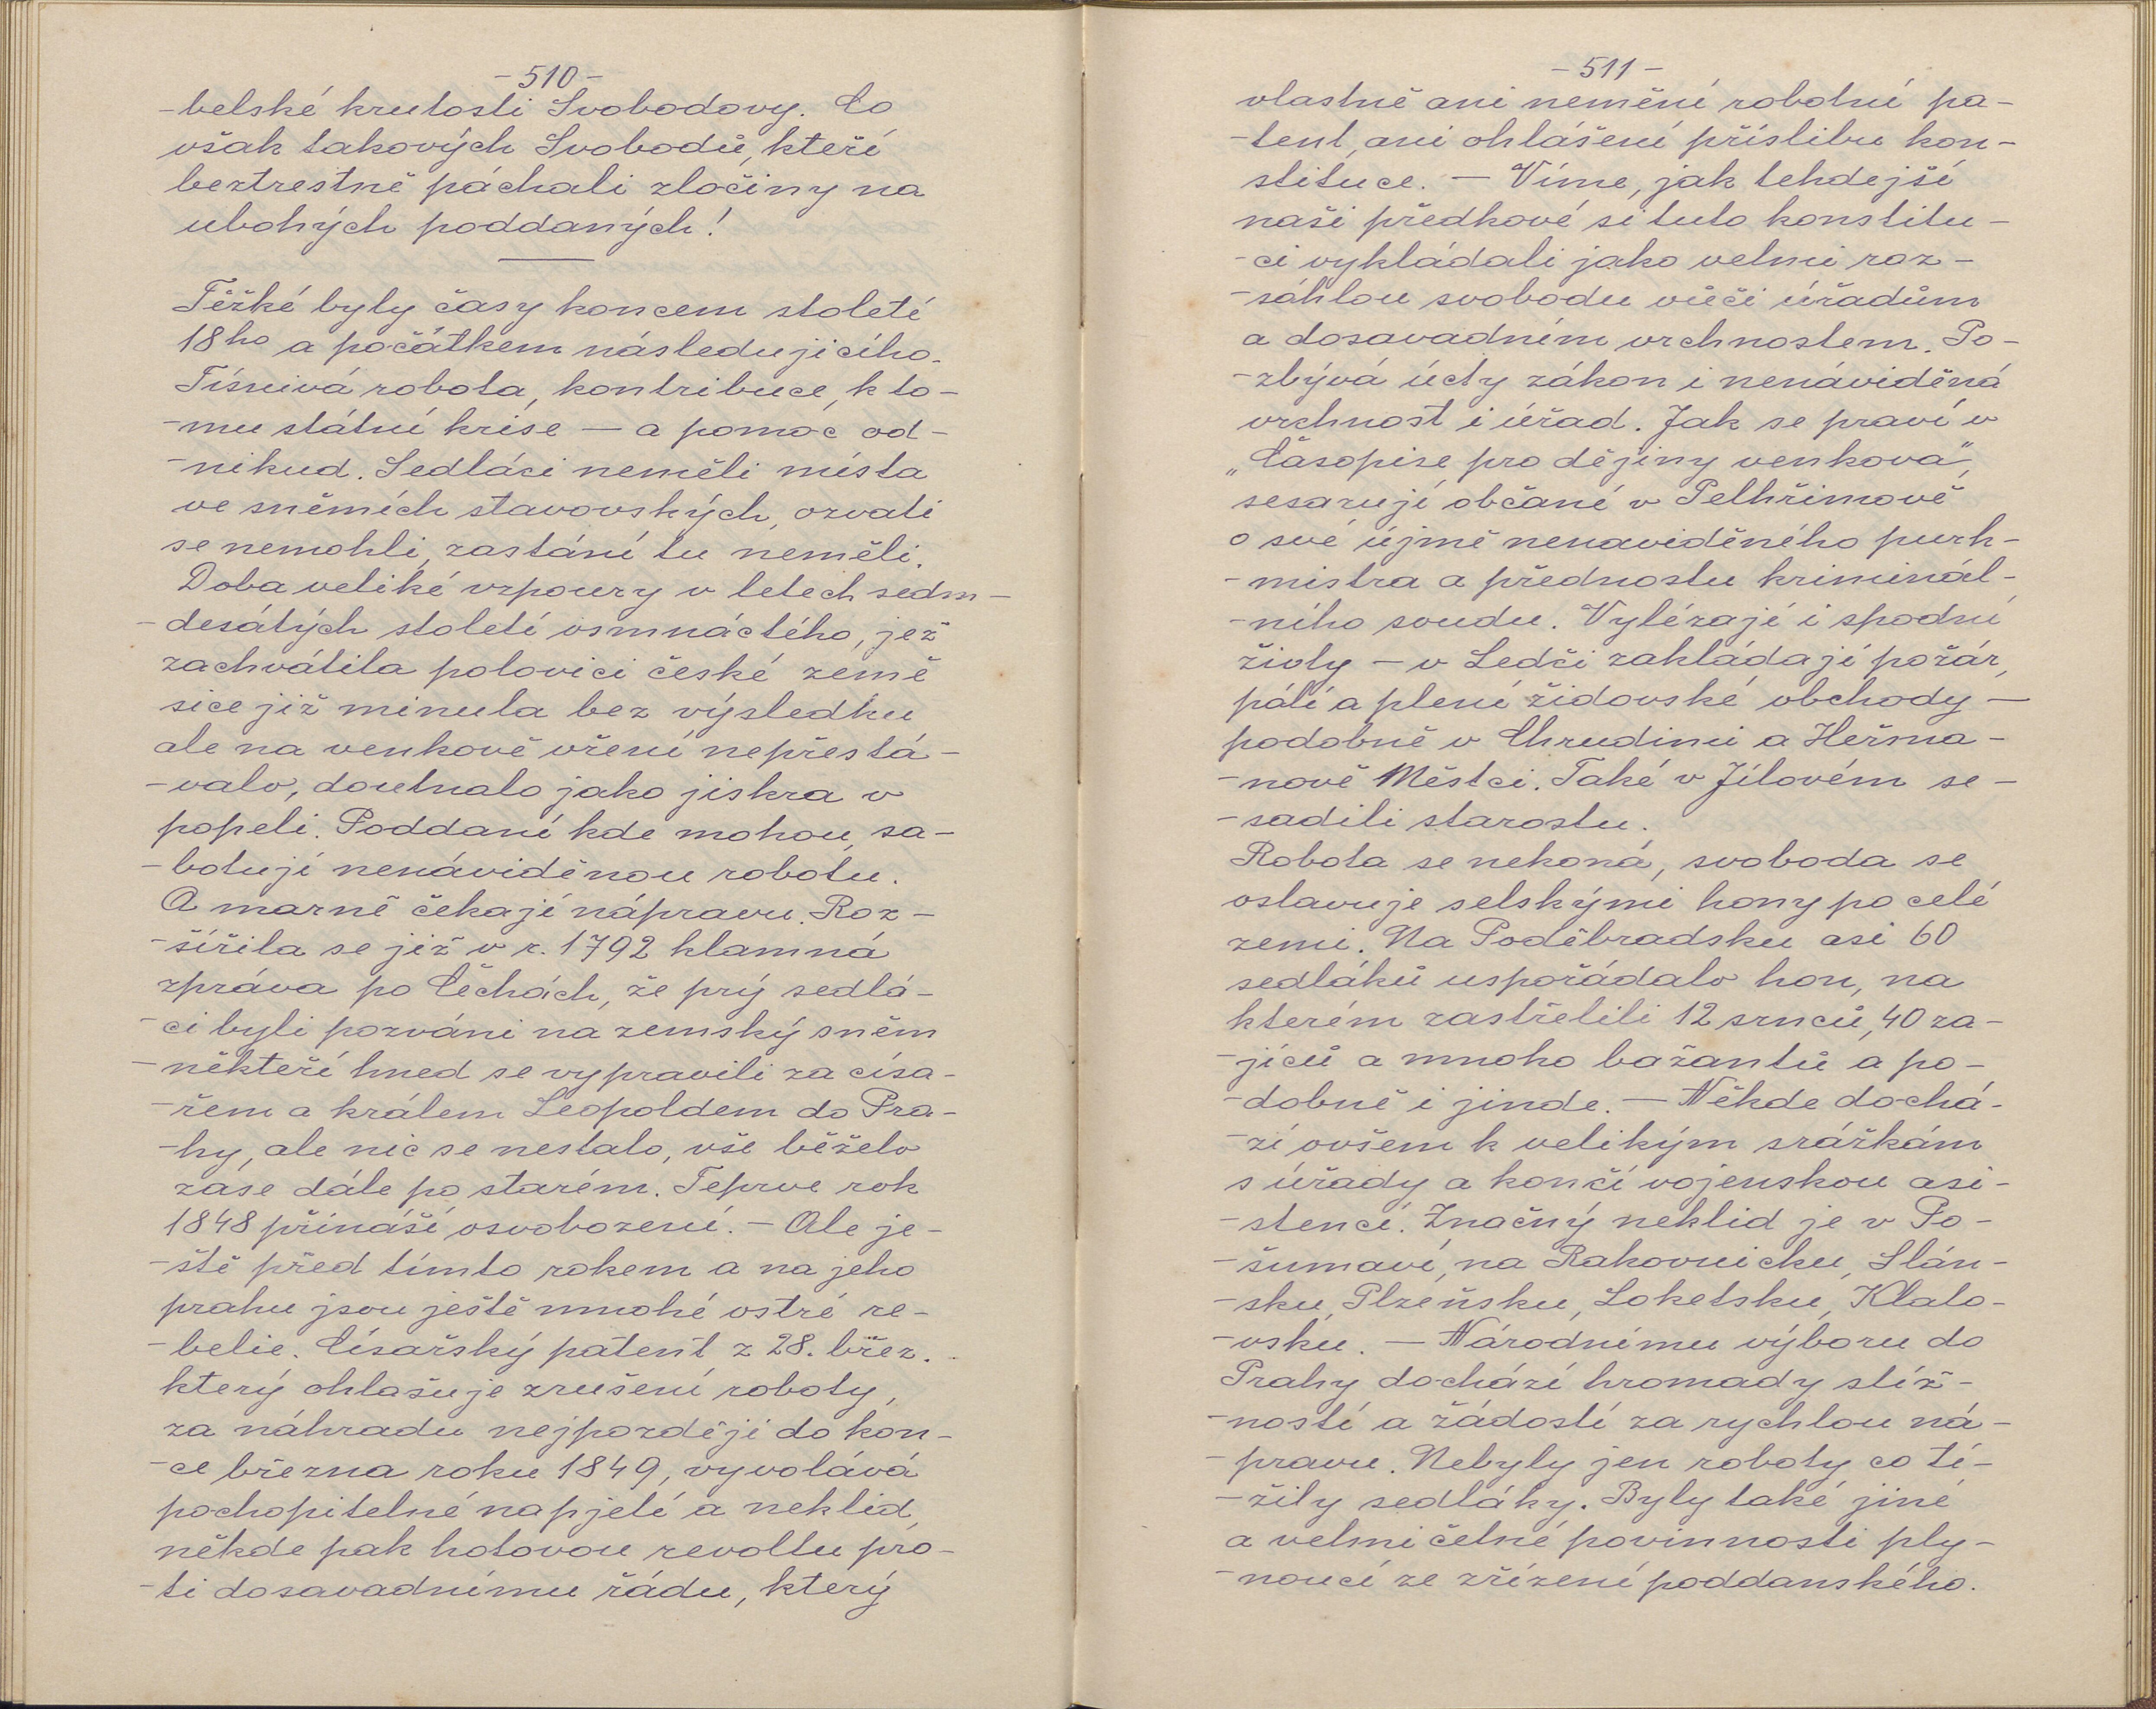 -510-
-belské krutosti Svobodovy. Co
však takových Svobodů, kteří
beztrestně páchali zločiny na
ubohých poddaných!
Těžké byly časy koncem století
18ho a počátkem následujícího.
Tísnivá robota, kontribuce, k to-
-mu státní krise — a pomoc od-
-nikud. Sedláci neměli místa
ve sněmích stavovských, ozvati
se nemohli, zastání tu neměli.
Doba veliké vzpoury v letech sedm-
-desátých století osmnáctého, jež
zachvátila polovici české země
sice již minula bez výsledku
ale na venkově vření nepřestá-
-valo, doutnalo jako jiskra v
popeli. Poddaní kde mohou, sa-
-botují nenáviděnou robotu.
A marně čekají nápravu. Roz-
-šířila se již v r. 1792 klamná
zpráva po Čechách, že prý sedlá-
-ci byli pozváni na zemský sněm
-někteří hned se vypravili za císa-
-řem a králem Leopoldem do Pra-
-hy, ale nic se nestalo, vše běželo
zase dále po starém. Teprve rok
1848 přináší osvobození. — Ale je-
-ště před tímto rokem a na jeho
prahu jsou ještě mnohé ostré re-
-belie. Císařský patent z 28. břez.
který ohlašuje zrušení roboty,
za náhradu nejpozději do kon-
-ce března roku 1849, vyvolává
pochopitelné napjetí a neklid,
někde pak hotovou revoltu pro-
-ti dosavadnímu řádu, který
-511-
vlastně ani nemění robotní pa-
-tent, ani ohlášení příslibu kon-
stituce. — Víme, jak tehdejší
naši předkové si tuto konstitu-
-ci vykládali jako velmi roz-
-sáhlou svobodu vůči úřadům
a dosavadním vrchnostem. Po-
-zbývá úcty zákon i nenáviděná
vrchnost i úřad. Jak se praví v
„Časopise pro dějiny venkova“,
sesazují občané v Pelhřimově
o své újmě nenaviděného purk-
-mistra a přednostu kriminál-
-ního soudu. Vylézají i spodní
živly — v Ledči zakládají požár,
pálí a plení židovské obchody —
podobně v Chrudimi a Heřma-
-nově Městci. Také v Jílovém se-
-sadili starostu.
Robota se nekoná, svoboda se
oslavuje selskými hony po celé
zemi. Na Poděbradsku asi 60
sedláků uspořádalo hon, na
kterém zastřelili 12 srnců, 40 za-
-jíců a mnoho bažantů a po-
-dobně i jinde. — Někde dochá-
-zí ovšem k velikým srážkám
s úřady a končí vojenskou asi-
-stencí. Značný neklid je v Po-
-šumaví, na Rakovnicku, Slán-
-sku, Plzeňsku, Loketsku, Klato-
-vsku. — Národnímu výboru do
Prahy dochází hromady stíž-
-ností a žádostí za rychlou ná-
-pravu. Nebyly jen roboty co tí-
-žily sedláky. Byly také jiné
a velmi četné povinnosti ply-
-noucí ze zřízení poddanského.